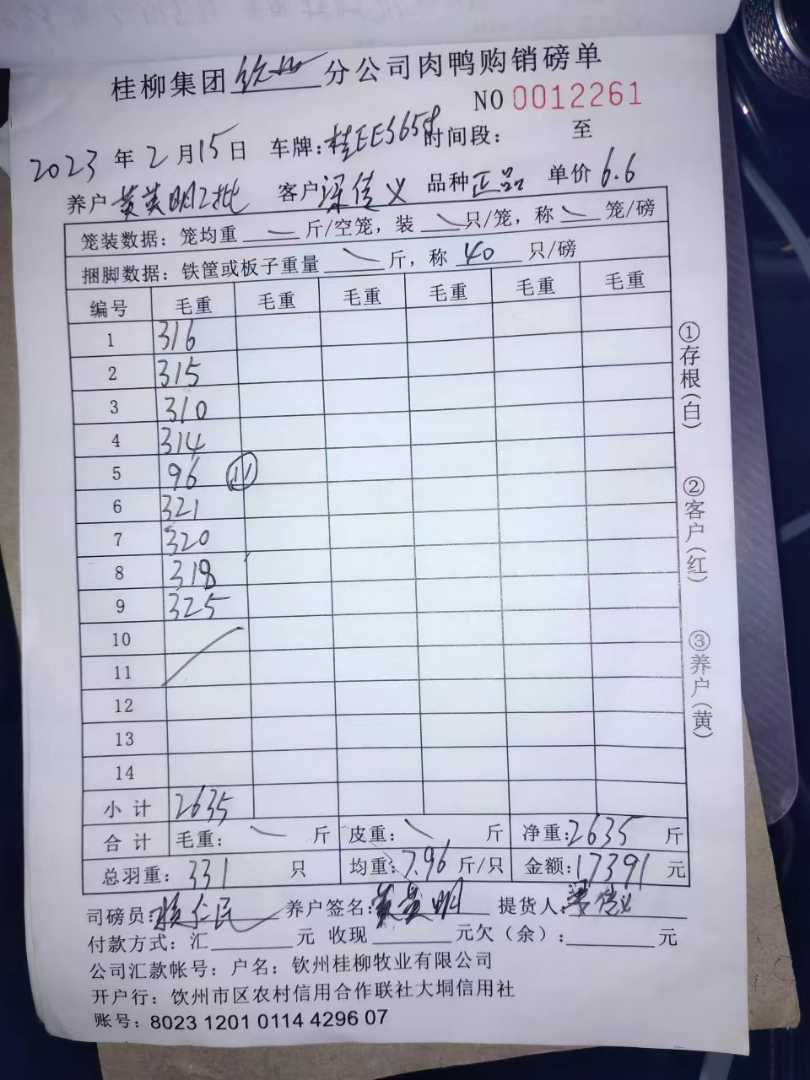 桂柳集团 钦州 分公司肉鸭购销磅单
NO 0012261
2023 年 2 月 15 日 车牌: 时间段: 至
养户 客户 梁传义 品种 正品 单价 6.6
笼装数据: 笼均重 斤/空笼, 装 只/笼, 称 笼/磅
捆脚数据: 铁筐或板子重量 斤, 称 40 只/磅
编号 毛重 毛重 毛重 毛重 毛重 毛重
1 316
2 315
3 310
4 314
5 96 (11)
6 321
7 320
8 318
9 325
10
11
12
13
14
小计 2635
合计 毛重: 斤 皮重: 斤 净重: 2635 斤
总羽重: 331 只 均重: 7.96 斤/只 金额: 17391 元
司磅员: 养户签名: 提货人:
付款方式: 汇 元 收现 元欠(余): 元
公司汇款帐号: 户名: 钦州桂柳牧业有限公司
开户行: 钦州市区农村信用合作联社大垌信用社
账号: 8023 1201 0114 4296 07
①存根(白)
②客户(红)
③养户(黄)